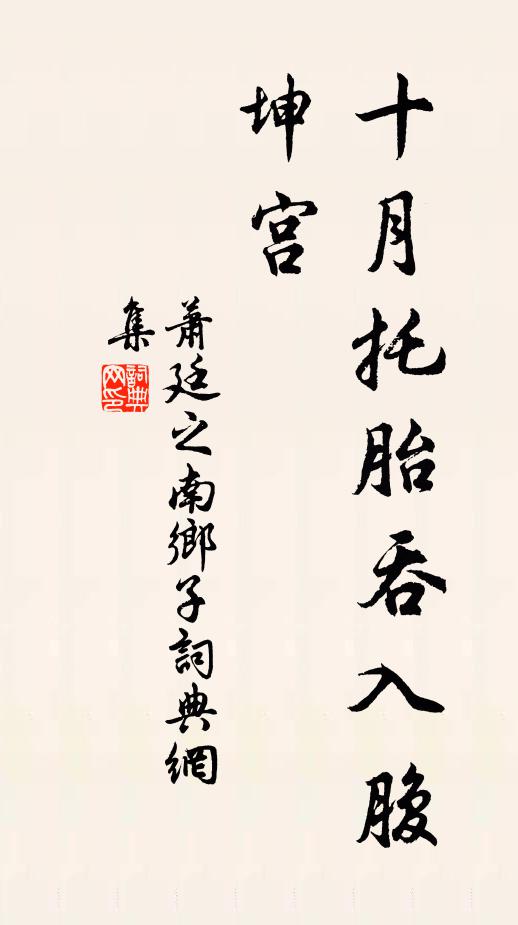 十月托胎吞入腹
坤宫
萧廷之南鄉子詞典網
集
詞典
网印